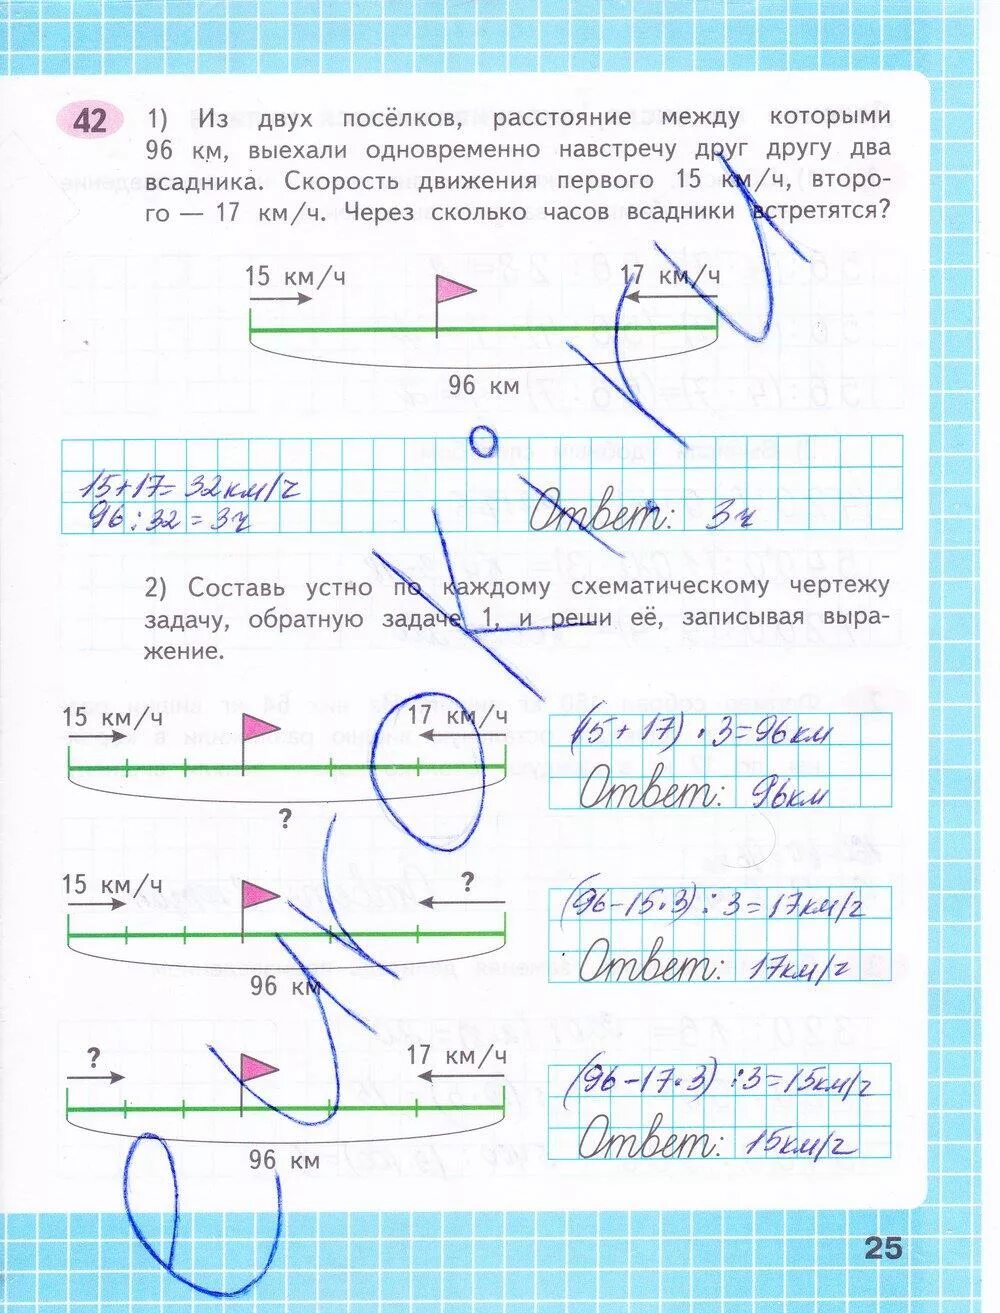 42
1) Из двух посёлков, расстояние между которыми
96 км, выехали одновременно навстречу друг другу два
всадника. Скорость движения первого 15 км/ч, второ-
го — 17 км/ч. Через сколько часов всадники встретятся?
15 км/ч 17 км/ч
96 км
15+17=32км/ч
96:32=3ч Ответ: 3ч
2) Составь устно по каждому схематическому чертежу
задачу, обратную задаче 1, и реши её, записывая выра-
жение.
15 км/ч 17 км/ч
?
(15+17)·3=96км
Ответ: 96км
15 км/ч ?
96 км
(96-15·3):3=17км/ч
Ответ: 17км/ч
? 17 км/ч
96 км
(96-17·3):3=15км/ч
Ответ: 15км/ч
25